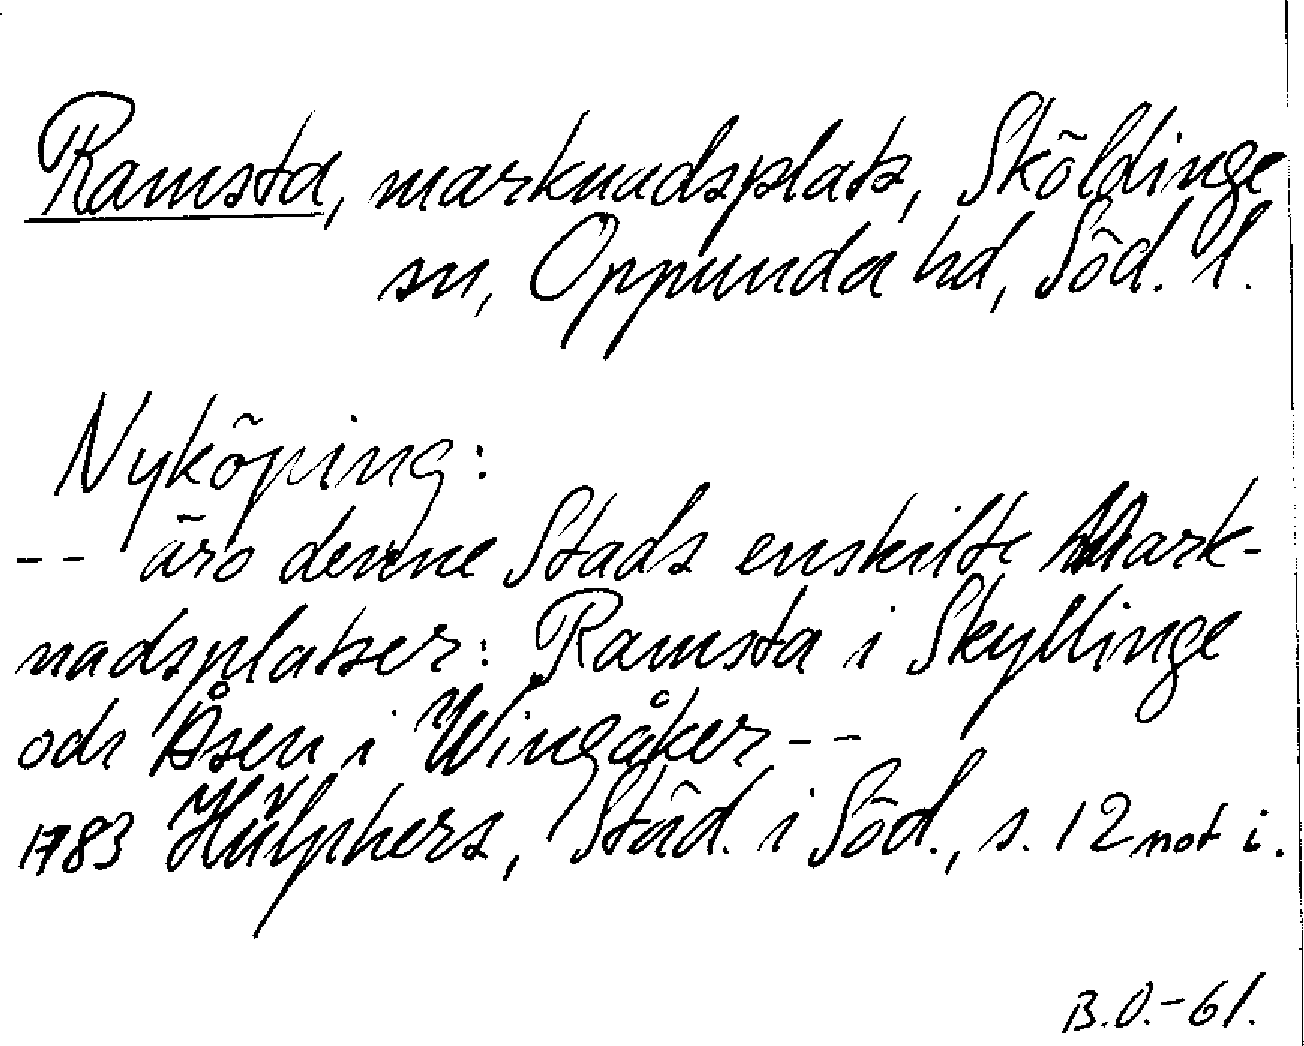 Ramsta, marknadsplats, Sköldinge
sn, Oppunda hd, Söd. l.
Nyköping:
-- äro denne Stads enskilte Mark-
nadsplatser: Ramsta i Skyllinge
och Åsen i Wingåker --
1783 Hülphers, Städ. i Söd., s. 12 not i.
B.O.-61.